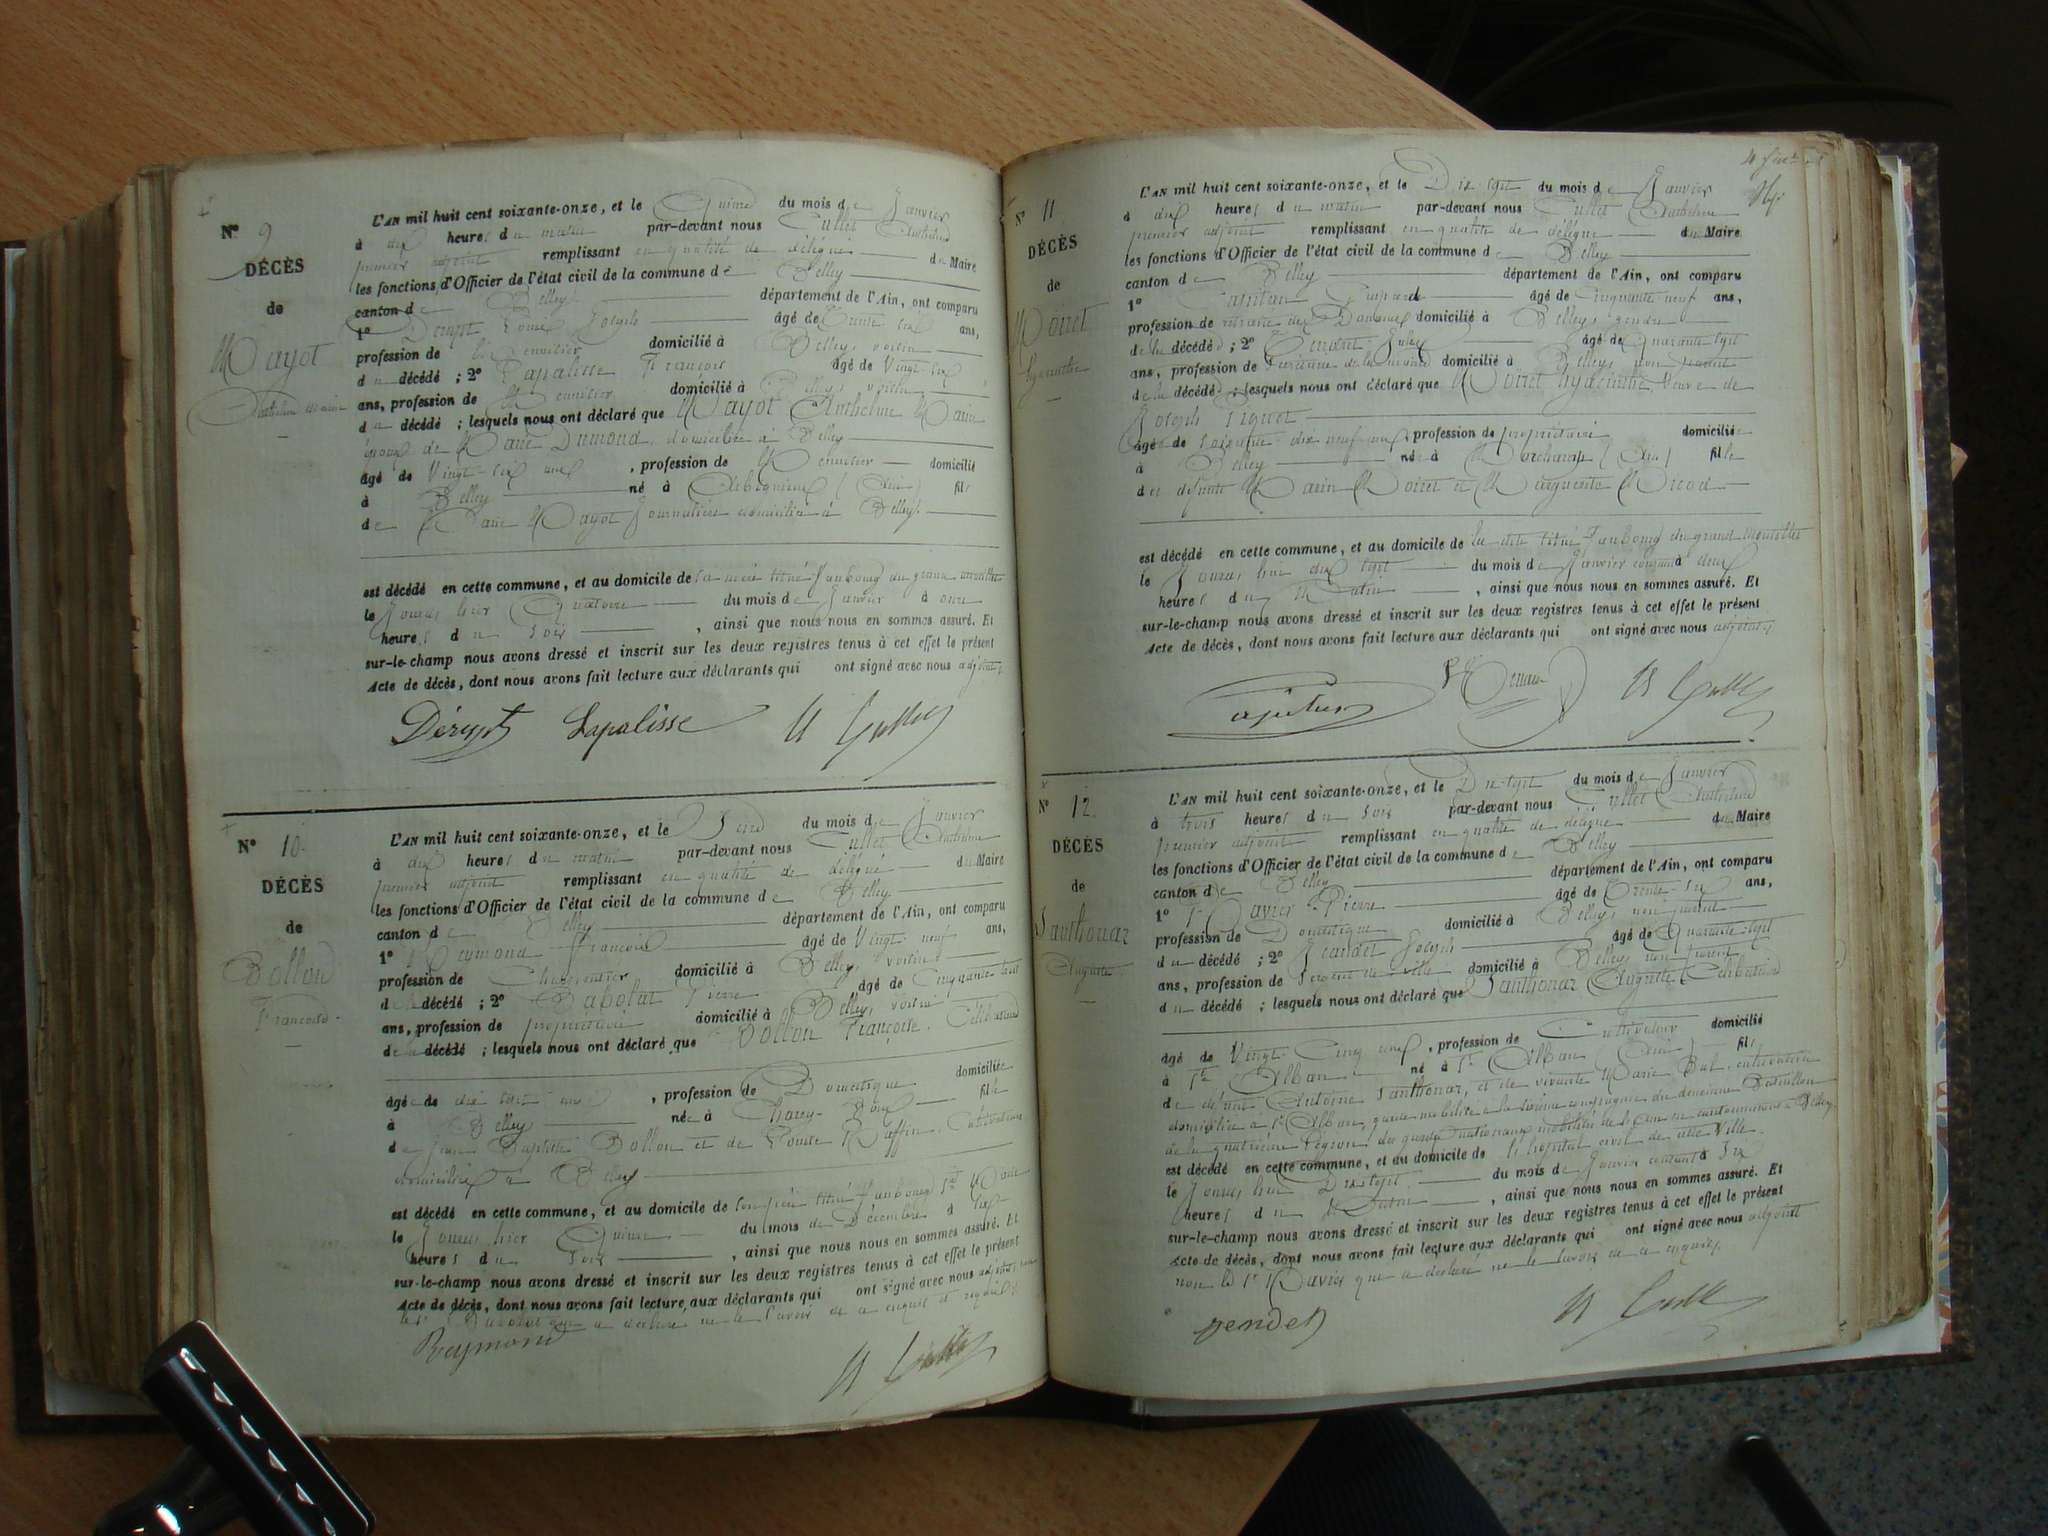 N° 9
DÉCÈS
de
Mayot
Anthelme Marie
L'AN mil huit cent soixante-onze, et le Quinze du mois de Janvier
à dix heures du matin par-devant nous Cullet Anthelme
premier adjoint remplissant en qualité de délégué du Maire
les fonctions d'Officier de l'état civil de la commune de Belley
canton de Belley département de l'Ain, ont comparu
1° Dérupt Joseph âgé de Trente six ans,
profession de Menuisier domicilié à Belley, voisin
du décédé ; 2° Lapalisse François âgé de Vingt six
ans, profession de Menuisier domicilié à Belley, voisin
du décédé ; lesquels nous ont déclaré que Mayot Anthelme Marie
époux de Marie Dumond, domicilié à Belley
âgé de Vingt-six ans, profession de Menuisier domicilié
à Belley né à Arbignieu (Ain) fils
de Marie Mayot Journalière domiciliée à Belley.
est décédé en cette commune, et au domicile de sa mère titué Faubourg du grand
le Jour hier Quatorze du mois de Janvier à onze
heures du soir, ainsi que nous nous en sommes assuré. Et
sur-le-champ nous avons dressé et inscrit sur les deux registres tenus à cet effet le présent
Acte de décès, dont nous avons fait lecture aux déclarants qui ont signé avec nous adjoint
Dérupt Lapalisse Cullet
N° 10
DÉCÈS
de
Bollon
Françoise
L'AN mil huit cent soixante-onze, et le du mois de Janvier
à dix heures du matin par-devant nous Cullet Anthelme
premier adjoint remplissant en qualité de délégué du Maire
les fonctions d'Officier de l'état civil de la commune de Belley
canton de Belley département de l'Ain, ont comparu
1° Reymond François âgé de Vingt neuf ans,
profession de Charpentier domicilié à Belley, voisin
de la décédée ; 2° Pierre âgé de Cinquante huit
ans, profession de propriétaire domicilié à Belley, voisin
de la décédée ; lesquels nous ont déclaré que Bollon Françoise, Célibataire
âgée de dix huit ans, profession de Domestique domiciliée
à Belley née à fille
de Jean Baptiste Bollon et de Louise, Cultivateurs
domiciliés à Belley
est décédé en cette commune, et au domicile de son père titué Faubourg St Marie
le Jour hier Quinze du mois de Décembre à six
heures du soir, ainsi que nous nous en sommes assuré. Et
sur-le-champ nous avons dressé et inscrit sur les deux registres tenus à cet effet le présent
Acte de décès, dont nous avons fait lecture aux déclarants qui ont signé avec nous adjoint non
le Sr qui a déclaré ne le savoir de ce enquis et requis
Reymond Cullet
N° 11
DÉCÈS
de
Moiret
hyacinthe
L'AN mil huit cent soixante-onze, et le Dix sept du mois de Janvier
à dix heures du matin par-devant nous Cullet Anthelme
premier adjoint remplissant en qualité de délégué du Maire
les fonctions d'Officier de l'état civil de la commune de Belley
canton de Belley département de l'Ain, ont comparu
1° Capitan âgé de Cinquante-neuf ans,
profession de retraité des Douanes domicilié à Belley, gendre
de la décédée ; 2° Jules âgé de Quarante sept
ans, profession de Secrétaire de la mairie domicilié à Belley, non parent
de la décédée ; lesquels nous ont déclaré que Moiret hyacinthe Veuve de
Joseph
âgée de soixante-dix neuf ans, profession de propriétaire domiciliée
à Belley née à (Ain) fille
des défunts Marin Moiret et Marguerite
est décédé en cette commune, et au domicile de la dite titué Faubourg du grand
le Jour hui dix sept du mois de Janvier courant à deux
heures du Matin, ainsi que nous nous en sommes assuré. Et
sur-le-champ nous avons dressé et inscrit sur les deux registres tenus à cet effet le présent
Acte de décès, dont nous avons fait lecture aux déclarants qui ont signé avec nous adjoint
Cullet
N° 12
DÉCÈS
de
Santhonax
Auguste
L'AN mil huit cent soixante-onze, et le Dix-sept du mois de Janvier
à trois heures du soir par-devant nous Cullet Anthelme
premier adjoint remplissant en qualité de délégué du Maire
les fonctions d'Officier de l'état civil de la commune de Belley
canton de Belley département de l'Ain, ont comparu
1° Pierre âgé de Trente-six ans,
profession de Domestique domicilié à Belley, non parent
du décédé ; 2° Joseph âgé de Quarante-sept
ans, profession de Sergent de ville domicilié à Belley non parent
du décédé ; lesquels nous ont déclaré que Santhonax Auguste Célibataire
âgé de Vingt Cinq ans, profession de Cultivateur domicilié
à St Alban né à St Alban (Ain) fils
de défunt Antoine Santhonax, et de vivante Marie, cultivatrice
domiciliée à St Alban, garde mobilisé à la sixième compagnie du deuxième Bataillon
de la quatrième Légion des gardes nationaux mobilisés de l'Ain en cantonnement à Belley
est décédé en cette commune, et au domicile de l'hôpital civil de cette Ville.
le Jour hui Dix sept du mois de Janvier courant à six
heures du Matin, ainsi que nous nous en sommes assuré. Et
sur-le-champ nous avons dressé et inscrit sur les deux registres tenus à cet effet le présent
Acte de décès, dont nous avons fait lecture aux déclarants qui ont signé avec nous adjoint
non le Sr qui a déclaré ne le savoir de ce enquis.
Cullet